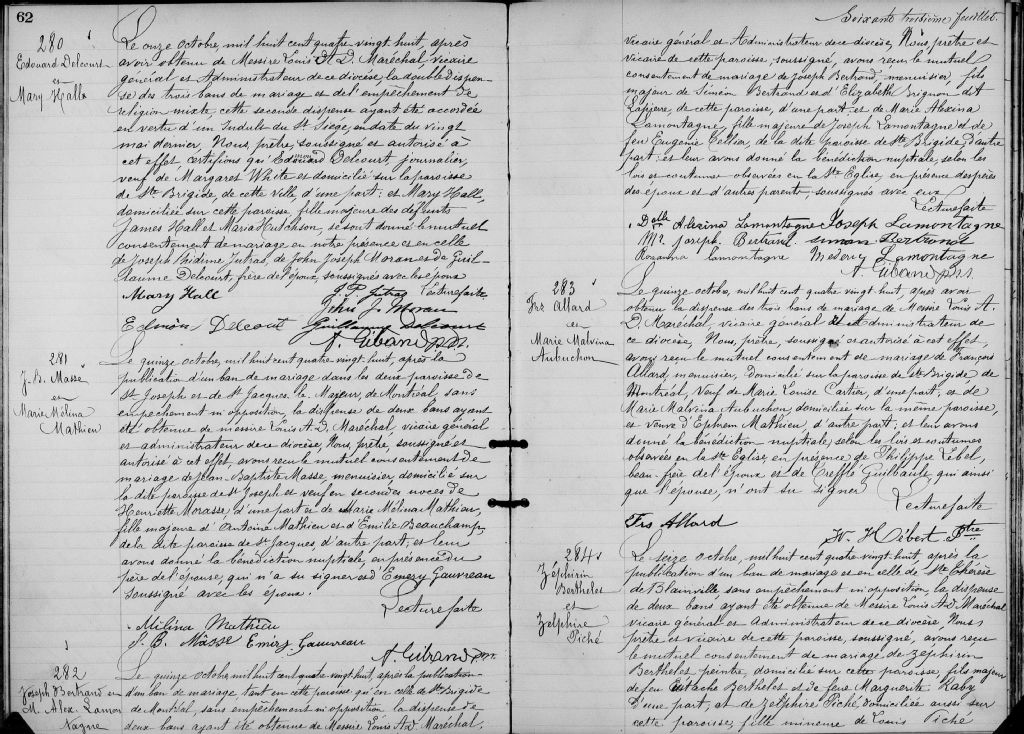 62
280
Edouard Delcourt
et
Mary Hall
Le onze octobre, mil huit cent quatre vingt huit, après
avoir obtenu de Messire Louis A. D. Maréchal vicaire
général et Administrateur de ce diocèse, la double dispen-
se des trois bans de mariage et de l'empêchement de
religion mixte, cette seconde dispense ayant été accordée
en vertu d'un Indult du St. Siège, en date du vingt
mai dernier, Nous, prêtre, soussigné et autorisé à
cet effet certifions que Edmond Delcourt, journalier,
veuf de Margaret White et domicilié sur la paroisse
de Ste Brigide, de cette ville, d'une part; et Mary Hall,
domiciliée sur cette paroisse, fille majeure des défunts
James Hall et Maria Hutchson, se sont donné le mutuel
consentement de mariage en notre présence et en celle
de Joseph Phidime Jutras, de John Joseph Moran et de Guil-
laume Delcourt, frère de l'époux, soussignés avec les époux
Mary Hall
J. P. Jutras Lecture faite
John J. Moran
Edmon Delcourt Guillaume Delcourt
A. Giband ptr.
281
J. B. Masse
et
Marie Mélina
Mathieu
Le quinze octobre, mil huit cent quatre vingt huit, après la
publication d'un ban de mariage dans les deux paroisses de
St Joseph et de St Jacques, le Majeur, de Montréal, sans
empêchement ni opposition, la dispense de deux bans ayant
été obtenue de messire Louis A. D. Maréchal, vicaire général
et administrateur de ce diocèse, Nous, prêtre, soussigné et
autorisé à cet effet, avons reçu le mutuel consentement de
mariage de Jean Baptiste Masse, menuisier, domicilié sur
la dite paroisse de St Joseph et veuf en secondes noces de
Henriette Morasse, d'une part et de Marie Mélina Mathieu,
fille majeure d'Antoine Mathieu et d'Emilie Beauchamp,
de la dite paroisse de St Jacques, d'autre part; et leur
avons donné la bénédiction nuptiale, en présence du
père de l'épouse, qui n'a su signer et d'Emery Gauvreau
soussigné avec les époux.
Lecture faite
Milina Mathieu
J. B. Masse Emery Gauvreau
A. Giband ptr.
282
Joseph Bertrand et
M. Alex. Lamon
tagne
Le quinze octobre, mil huit cent quatre vingt huit, après la publication
d'un ban de mariage tant en cette paroisse qu'en celle de Ste Brigide
de Montréal, sans empêchement ni opposition la dispense de
deux bans ayant été obtenue de Messire Louis A. D. Maréchal,
Soixante troisième feuillet.
vicaire général et Administrateur de ce diocèse, Nous, prêtre et
vicaire de cette paroisse, soussigné, avons reçu le mutuel
consentement de mariage de Joseph Bertrand, menuisier, fils
majeur de Siméon Bertrand et d'Elizabeth Grignon dit
Lapierre, de cette paroisse, d'une part, et de Marie Alexina
Lamontagne, fille majeure de Joseph Lamontagne et de
feu Eugénie Tellier, de la dite paroisse de Ste Brigide, d'autre
part; et leur avons donné la bénédiction nuptiale, selon les
lois et coutumes observées en la Ste Eglise, en présence des pères
des époux et d'autres parents, soussignés avec eux
Lecture faite
Delle Alexina Lamontagne Joseph Lamontagne
Mr. Joseph. Bertrand. simon Bertrand
Rosanna lamontagne Mederic Lamontagne
A. Giband ptr.
283
Frs Allard
et
Marie Malvina
Aubuchon
Le quinze octobre, mil huit cent quatre vingt huit, après avoir
obtenu la dispense des trois bans de mariage de Messire Louis A.
D. Maréchal, vicaire général et Administrateur de
ce diocèse, Nous, prêtre, soussigné et autorisé à cet effet,
avons reçu le mutuel consentement de mariage de François
Allard, menuisier, Domicilié sur la paroisse de Ste Brigide de
Montréal, Veuf de Marie Louise Cartier, d'une part, et de
Marie Malvina Aubuchon, domiciliée sur la même paroisse,
et veuve d'Ephrem Mathieu, d'autre part; et leur avons
donné la bénédiction nuptiale, selon les lois et coutumes
observées en la Ste Eglise, en présence de Philippe Lebel,
beau-frère de l'époux et de Trefflé Guilbault, qui ainsi
que l'épouse, n'ont su signer
Lecture faite
Frs Allard
H. Hébert Ptre
284
Zéphirin
Berthelet
et
Zelphire
Piché
Le seize octobre, mil huit cent quatre vingt huit, après la
publication d'un ban de mariage et en celle de Ste Thérèse
de Blainville sans empêchement ni opposition, la dispense
de deux bans ayant été obtenue de Messire Louis A. D. Maréchal
vicaire général et Administrateur de ce diocèse Nous
prêtre et vicaire de cette paroisse, soussigné, avons reçu
le mutuel consentement de mariage de Zéphirin
Berthelet, peintre, domicilié sur cette paroisse, fils majeur
de feu Eustache Berthelet et de feue Marguerite Raby
D'une part, et de Zelphire Piché, domiciliée aussi sur
cette paroisse, fille mineure de Louis Piché